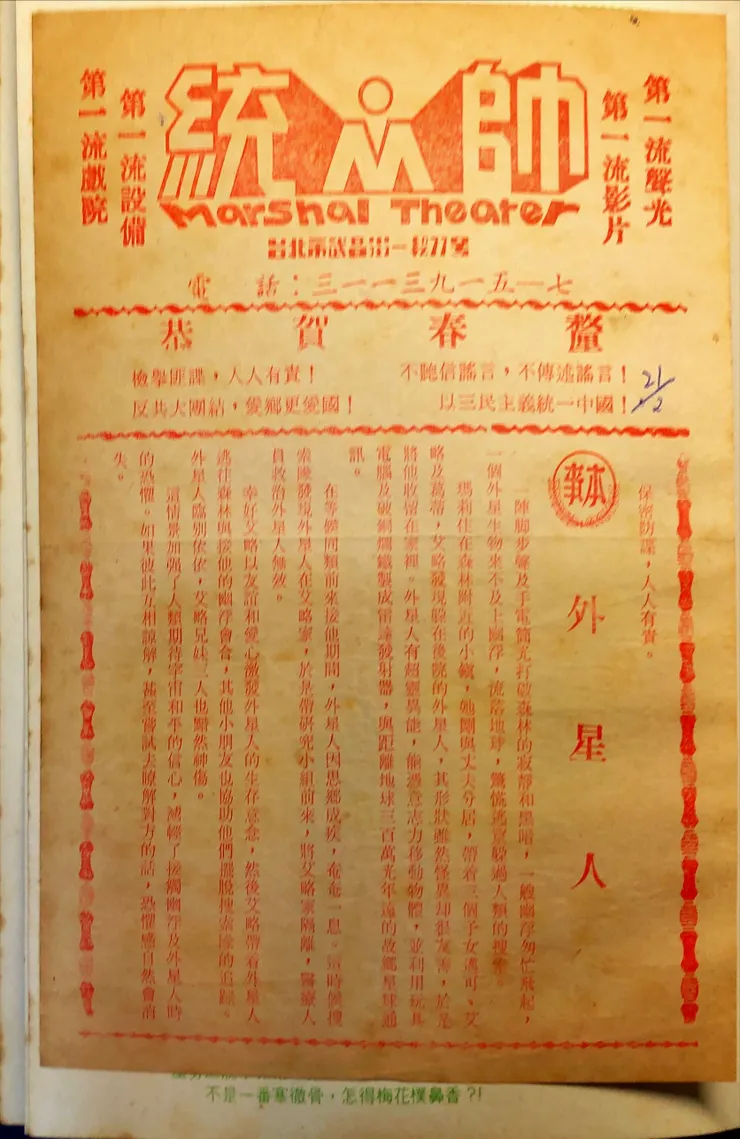 第一流聲光
第一流影片
統帥
Marshal Theater
第一流設備
第一流戲院
台北市武昌街一段77號
電話：三一一三九一五—七
恭賀春釐
檢舉匪諜，人人有責！
不聽信謠言，不傳述謠言！
反共大團結，愛鄉更愛國！
以三民主義統一中國！
21/2
保密防諜，人人有責。
本事
外星人
一陣脚步聲及手電筒光打破森林的寂靜和黑暗，一艘幽浮匆忙飛起，
一個外星生物來不及上幽浮，流落地球，驚慌逃竄躲過人類的搜索。
瑪利住在森林附近的小鎮，她剛與丈夫分居，帶着三個子女邁可、艾
略及葛蒂，艾略發現躲在後院的外星人，其形狀雖然怪異却很友善，於是
將他收留在家裡。外星人有超靈異能，能憑意志力移動物體，並利用玩具
電腦及破銅爛鐵製成雷達發射器，與距離地球三百萬光年遠的故鄉星球通
訊。
在等候同類前來接他期間，外星人因思鄉成疾，奄奄一息。這時候搜
索隊發現外星人在艾略家，於是帶研究小組前來，將艾略家隔離，醫療人
員救治外星人無效。
幸好艾略以友誼和愛心激發外星人的生存意念，然後艾略帶着外星人
逃往森林與接他的幽浮會合，其他小朋友也協助他們擺脫搜索隊的追踪。
外星人臨別依依，艾略兄妹三人也黯然神傷。
這情景加强了人類期待宇宙和平的信心，減輕了接觸幽浮及外星人時
的恐懼。如果彼此互相諒解，甚至嘗試去瞭解對方的話，恐懼感自然會消
失。
不是一番寒徹骨，怎得梅花樸鼻香?!